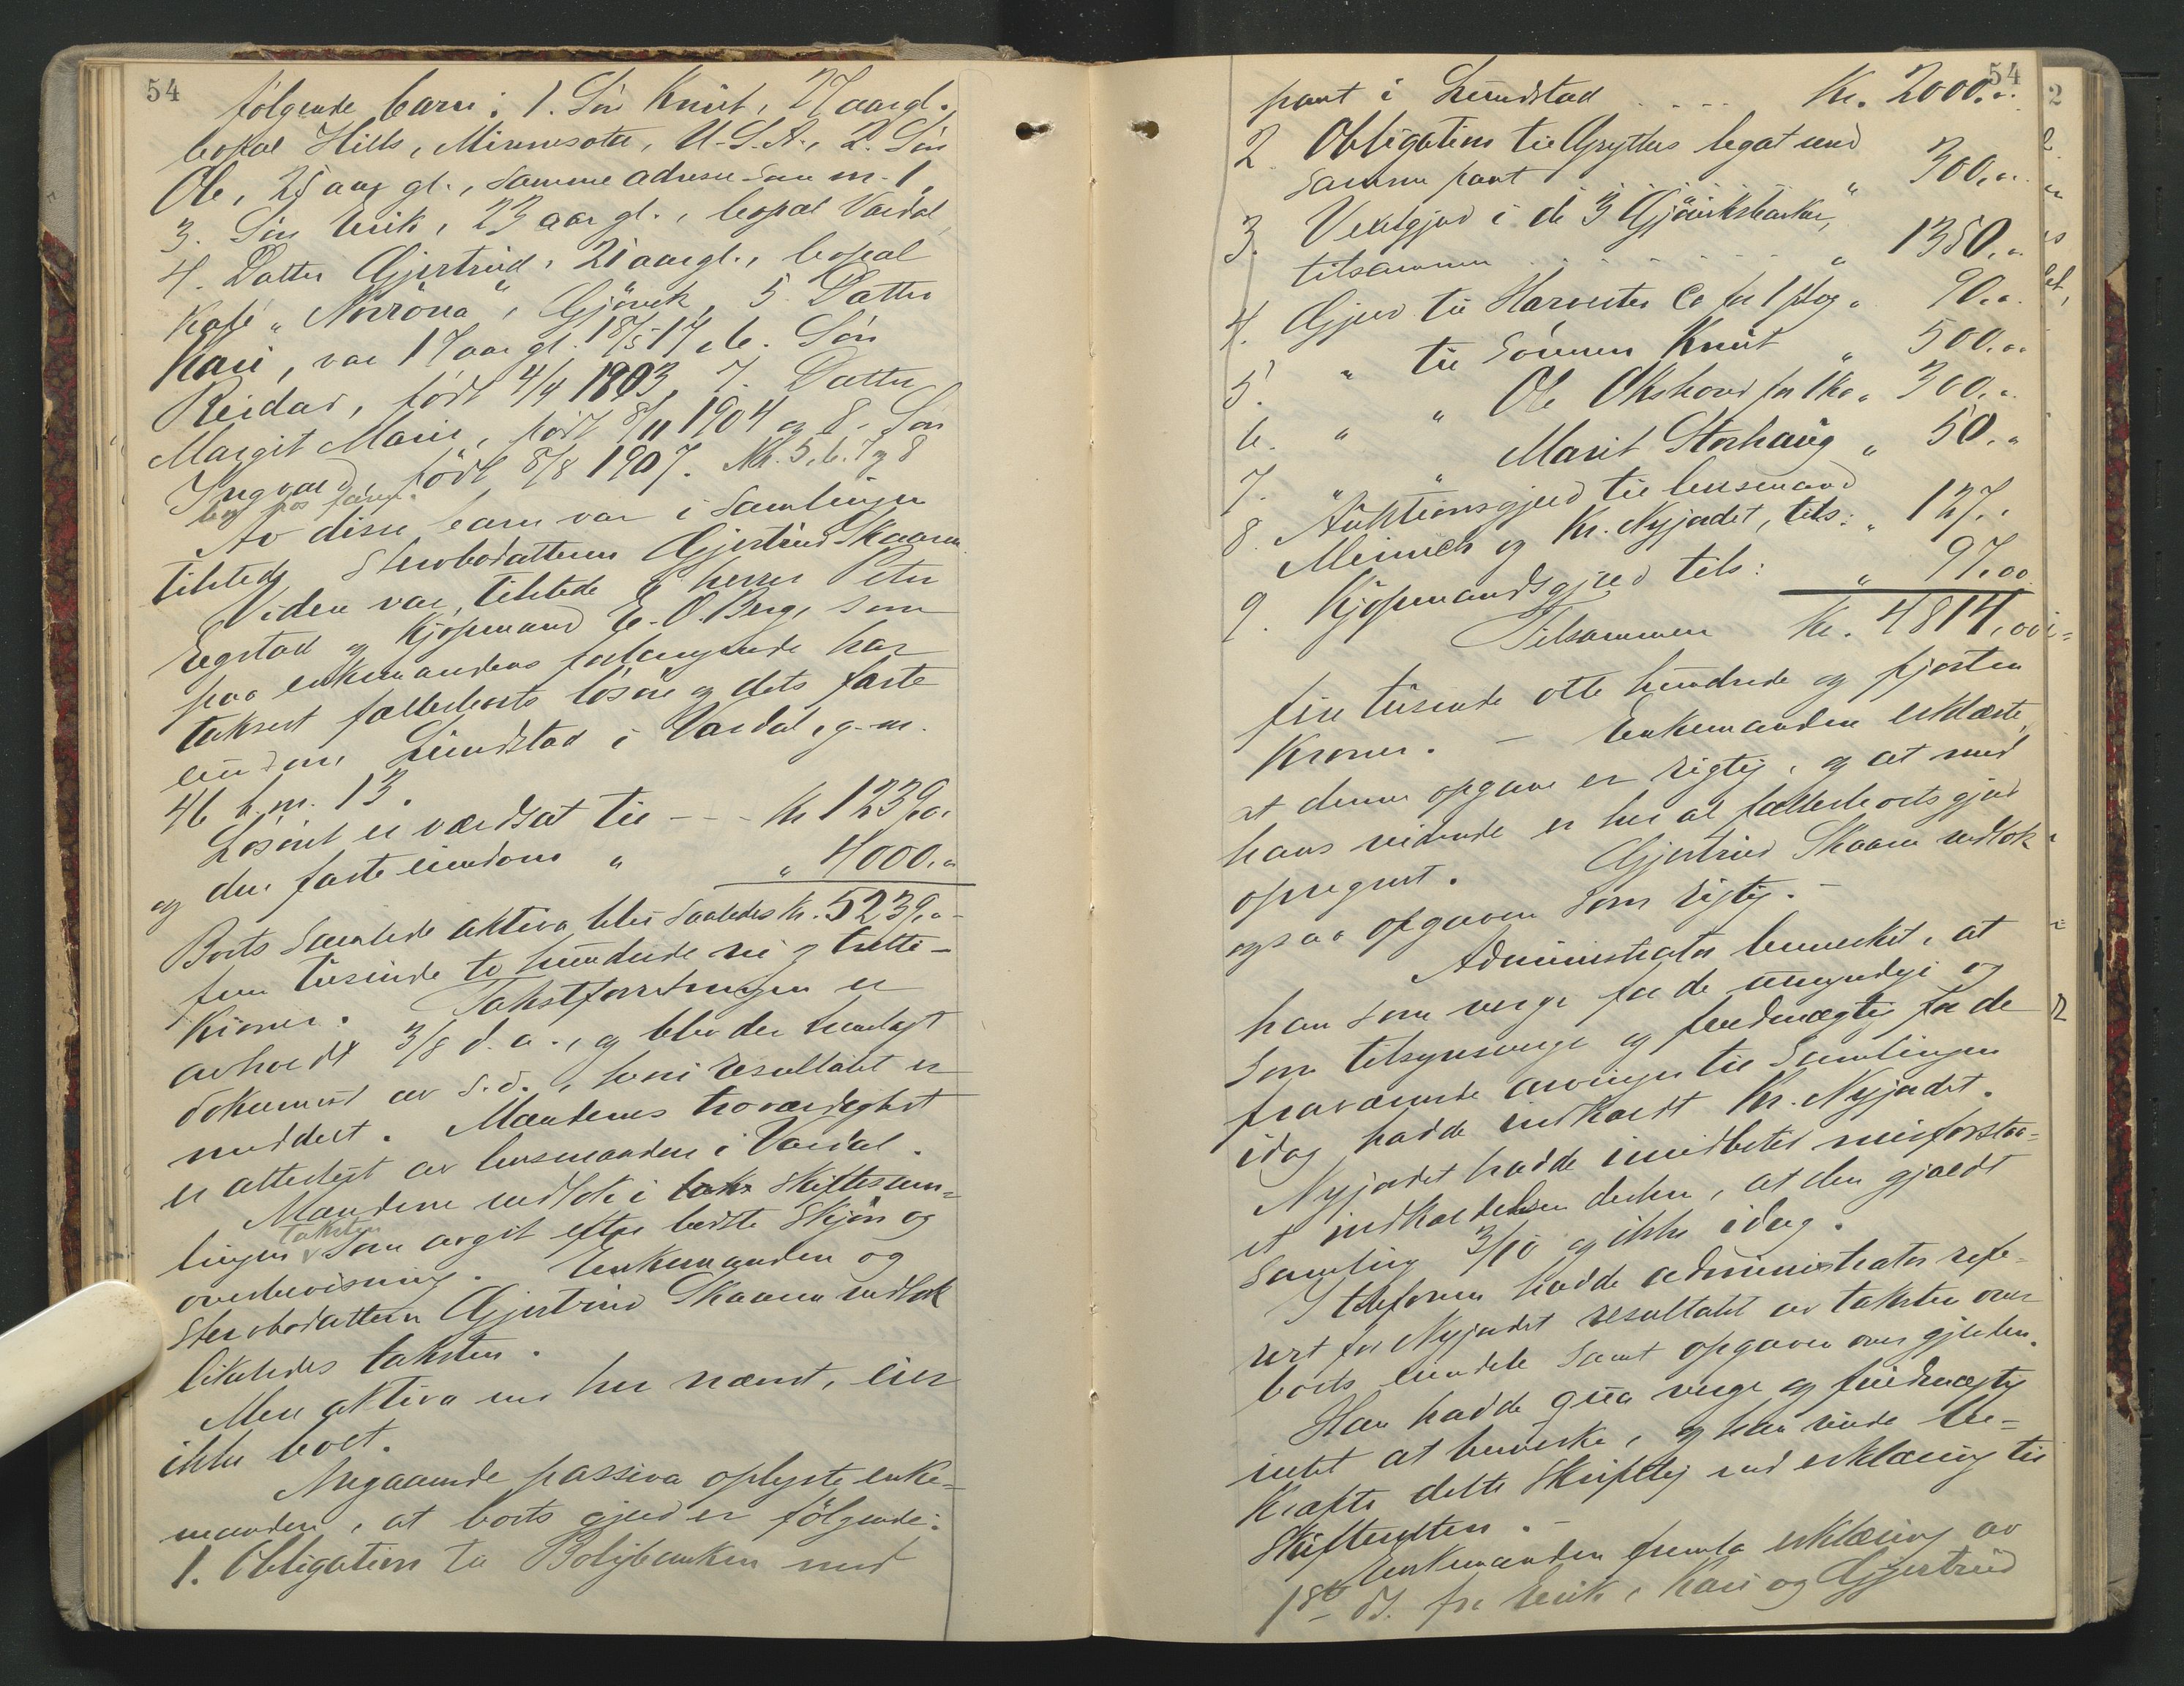 54
følgende barn: 1. Søn Knut, 27 aar gl.,
bopæl Hills, Minnesota, U.S.A., 2. Søn
Ole, 25 aar gl., samme adresse som m. 1,
3. Søn Erik, 23 aar gl., bopæl Vardal,
4. Datter Gjertrud, 21 aar gl., bopæl
Kafé "Norrøna", Gjøvik, 5. Datter
Kari, var 17 aar gl. 18/5-17, 6. Søn
Reidar, født 4/4 1903, 7. Datter
Margit Marie, født 8/11 1904 og 8. Søn
Ingvard, født 8/8 1907. Nr. 5, 6, 7 og 8
bor hos faren.
Av disse barn var i samlingen
tilstede Stervbodatteren Gjertrud Skaarn.
Videre var tilstede herrer Peter
Egstad og Kjøpmand E. O. Berg, som
paa enkemandens forlangende har
taksert fællesboets løsøre og dets faste
eiendom Lundstad i Vardal, g.-m.
46 b.m. 13.
Løsøret er værdsat til - - - Kr 1239,00
og den faste eiendom " " 4000,00
Boets samlede aktiva blir saaledes Kr. 5239,00 -
fem tusinde to hundrede ni og tretti -
Kroner. Takstforretningen er
avholdt 3/8 d.a., og blev der fremlagt
dokument av s.d., hvori resultatet er
meddelt. Mændenes troværdighet
er attestert av lensmanden i Vardal.
Mændene vedtok i Skiftesam=
lingen taksten som avgit efter bedste Skjøn og
overbevisning. Enkemanden og
Stervbodatteren Gjertrud Skaarn vedtok
likeledes taksten.
Mere aktiva end her nævnt, eier
ikke boet.
Angaaende passiva oplyste enke=
manden, at boets gjæld er følgende:
1. Obligation til Boligbanken med
54
pant i Lundstad .... Kr. 2000,00
2. Obligation til Gryttes legat med
samme pant " 300,00
3. Vexelgjæld i de 3 Gjøvikbanker,
tilsammen " 1350,00
4. Gjæld til Harvester Co for 1 plog " 90,00
5. " til sønnen Knut " 500,00
6. " " Ole Okshovd for 1 ko " 300,00
7. " " Marit Storhaug " 50,00
8. Auktionsgjæld til lensmand
Meinich og Kr. Nyjordet, tils: " 127,00
9. Kjøpmandsgjæld tils: " 97,00
Tilsammen Kr. 4814,00
fire tusende otte hundrede og fjorten
Kroner. - Enkemanden erklærte,
at denne opgave er rigtig, og at med
hans vidende er her al fællesboets gjæld
opregnet. Gjertrud Skaarn vedtok
ogsaa opgaven som rigtig. -
Administrator bemerket, at
han som verge for de umyndige og
som tilsynsverge og fuldmægtig for de
fraværende arvinger til samlingen
idag hadde indkaldt Kr. Nyjordet.
Nyjordet hadde imidlertid misforstaa=
et indkaldelsen derhen, at den gjaldt
Samling 3/10 og ikke idag.
I telefonen hadde administrator refe=
rert for Nyjordet resultatet av taksten over
boets eiendele samt opgaven over gjælden.
Han hadde qua verge og fuldmægtig
intet at bemerke, og han vilde be=
kræfte dette skriftlig ved erklæring til
Skifteretten. -
Enkemanden fremla erklæring av
18 ds. fra Erik, Kari og Gjertrud